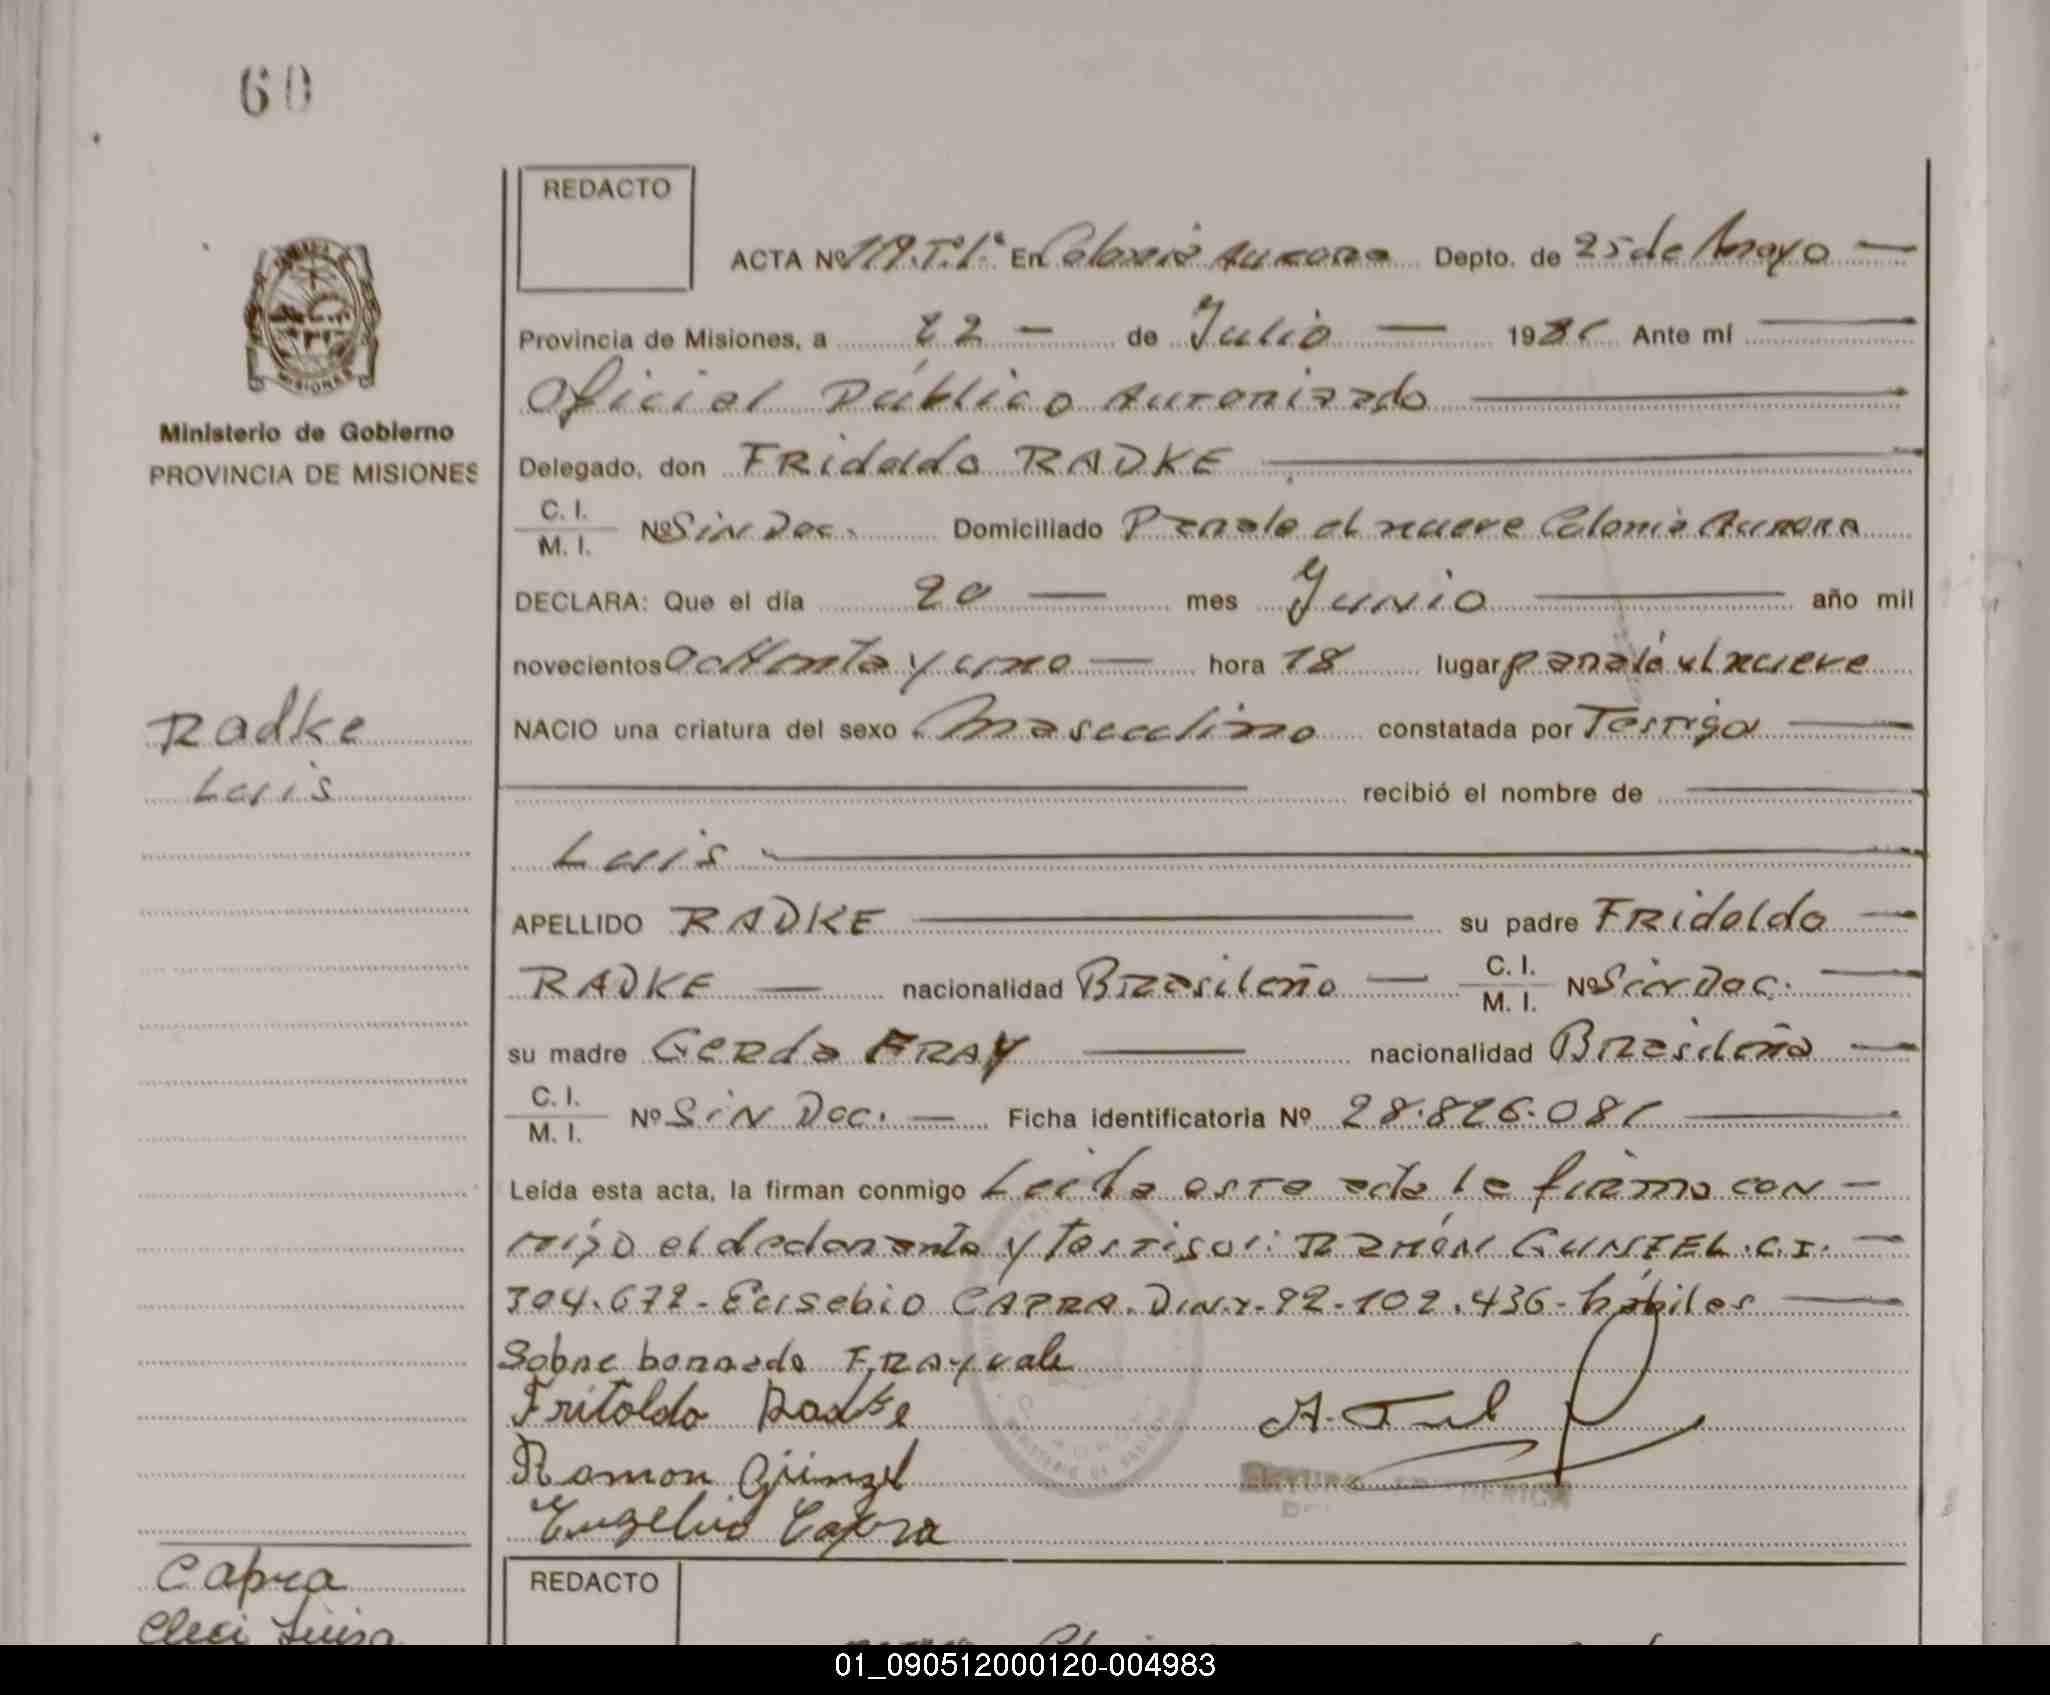 60
REDACTO
ACTA Nº 119.T.1.º En Colonia Aurora Depto. de 25 de Mayo
Provincia de Misiones, a 22 de Julio 1981 Ante mí
Oficial Público Autorizado
Ministerio de Gobierno
PROVINCIA DE MISIONES
Delegado, don FRidoldo RADKE
C. I.
M. I. Nº Sin Doc. Domiciliado Colonia Aurora
DECLARA: Que el día 20 mes Junio año mil
novecientos ochenta y uno hora 18 lugar
NACIO una criatura del sexo Masculino constatada por Testigo
recibió el nombre de
Radke
Luis
Luis
APELLIDO RADKE su padre FRidoldo
RADKE nacionalidad Brasileño C. I.
M. I. Nº Sin Doc.
su madre Gerda FRAY nacionalidad Brasileña
C. I.
M. I. Nº Sin Doc. Ficha identificatoria Nº 28.826.081
Leída esta acta, la firman conmigo Leida esta acta la firma con
migo el declarante y testigos: RAMÓN GUNZEL.C.I.
304.672-Eusebio CAPRA. 92-102.436-hábiles
Sobre borrado FRAY vale
Fritoldo Radke
Ramon Günzel
Eugebio Capra
Capra
Cleci Luisa
REDACTO
01_090512000120-004983